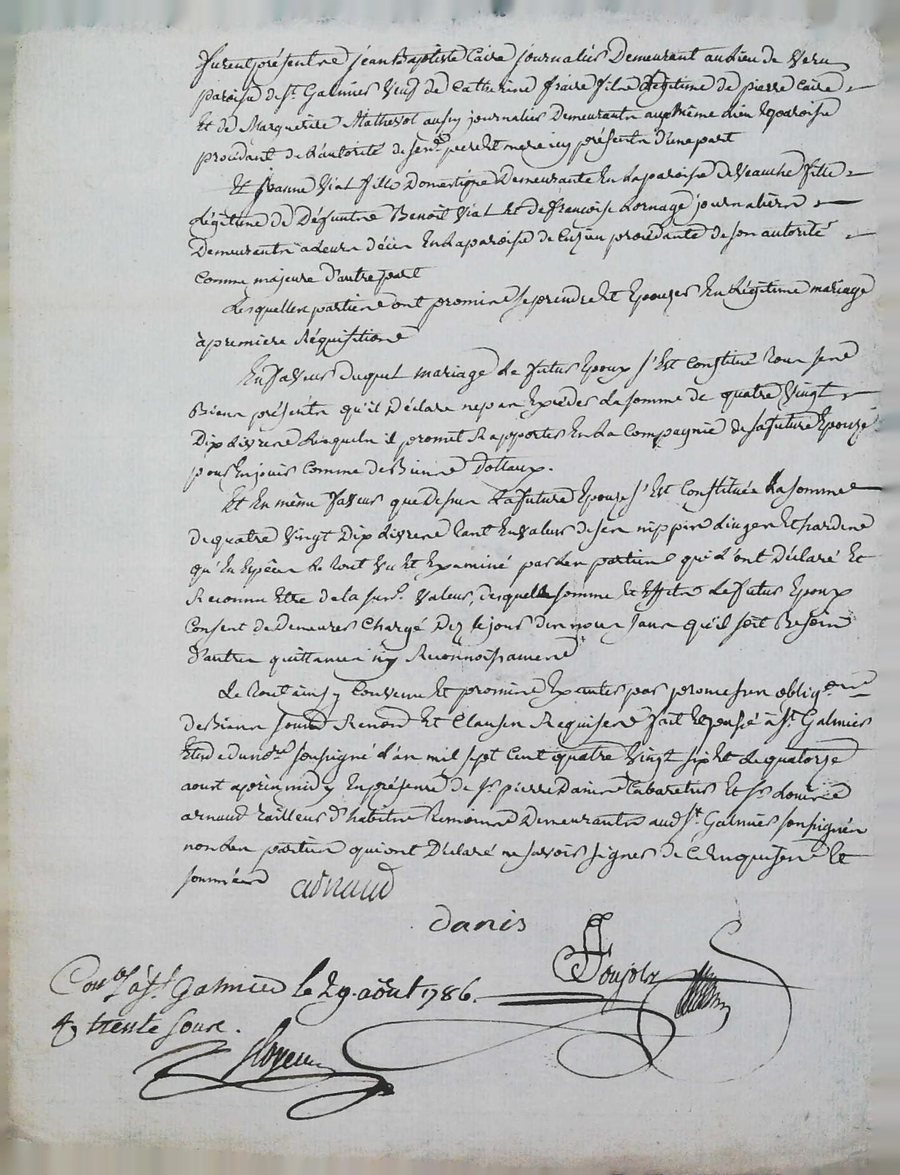 furent présents jean Baptiste Caire journalier Demeurant au lieu de
paroisse de St. Galmier veuf de Catherine fraire fils Légitime de pierre Caire
Et de Marguerite Mathevot aussy journalier Demeurants au même lieu Et paroisse
procédant de L'autorité de ses pere Et mere icy présents d'une part
Et jeanne Vial fille Domestique Demeurante En la paroisse de Veauche fille
Légitime de Défunts Benoit Vial Et de francoise Lornage journaliers
Demeurants a leurs décès En La paroisse de Cuzieu procédante de son autorité
Comme majeure d'autre part
Lesquelles parties ont promis se prendre Et Epouser En Légitime mariage
à premiere Réquisitions
En faveur Duquel mariage Le futur Epoux s'Est Constitué Tous ses
Biens présents qu'il Déclare ne pas Exceder La somme de quatre Vingt
Dix Livres Lesquels il promet Rapporter En La Compagnie de sa future Epouze
pour En jouir Comme de Biens Dottaux.
Et En même faveur que Dessus La future Epouze s'Est Constituée La somme
de quatre Vingt Dix Livres tant En valeur de ses nippes Linges Et hardes
qu'En Espèces Le tout Vu Et Examiné par Les parties qui L'ont Déclaré Et
Reconnu Etre de la sus. Valeur, desquelles somme Et Effets Le futur Epoux
Consent de Demeurer Chargé Dez le jour des noces sans qu'il soit Besoin
d'autres quittances ny Reconnoissances
Le tout ainsy Convenu Et promis Executer par promesses oblig.
de Biens soumis Renon Et Clauses Requises fait Et passé à St. Galmier
Etude du no.re soussigné L'an mil sept Cent quatre Vingt six Et Le quatorze
aoust après midy En présence de Sr. pierre Danis Cabaretier Et Sr. Louis
arnaud Tailleur d'habits Témoins Demeurants aud. St. Galmier soussignés
non Les parties qui ont Déclaré ne savoir signer de Ce Enquises Et
sommées arnaud
Danis
Con.lé à St. Galmier le 29. août 1786.
trente sous.